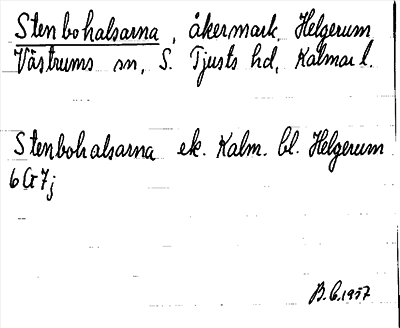 Stenbohalsarna, åkermark, Helgerum
Västrums sn, S. Tjusts hd, Kalmar l.
Stenbohalsarna ek. Kalm. bl. Helgerum
6G7j
B.C.1957